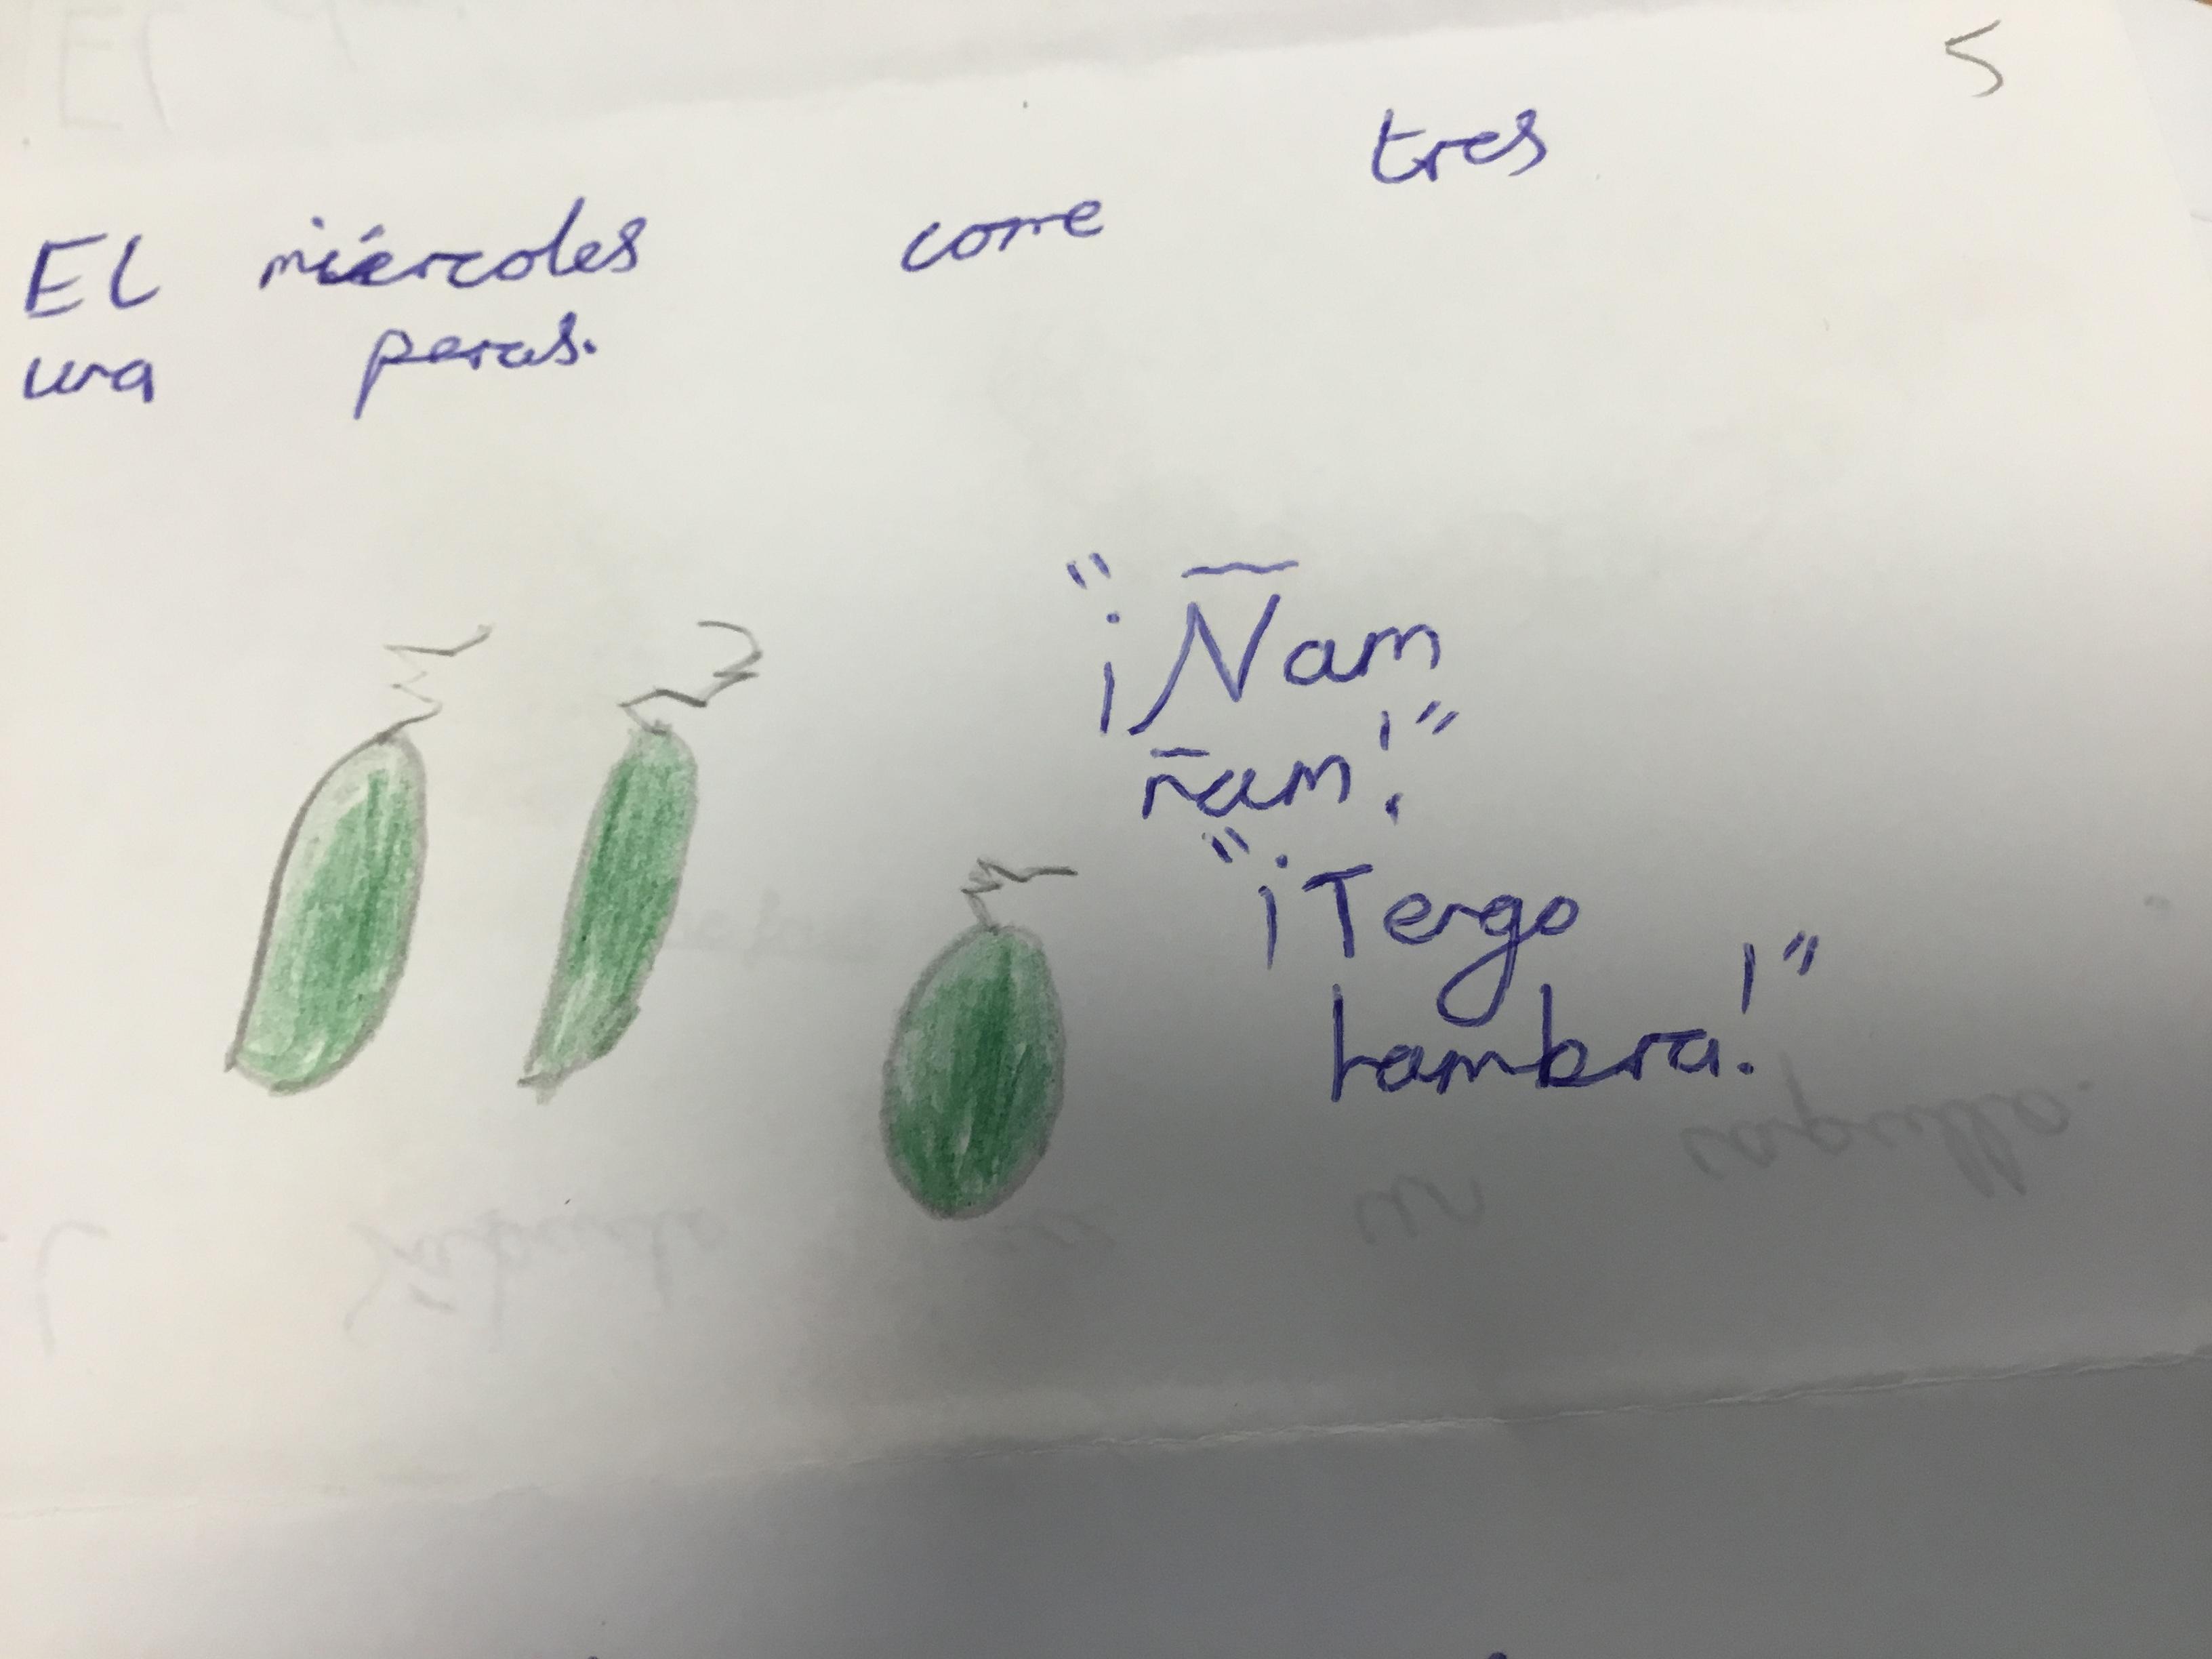 5
El miércoles come tres
una peras.
"¡Ñam
ñam!"
"¡Tengo
hambra!"
un capullo.